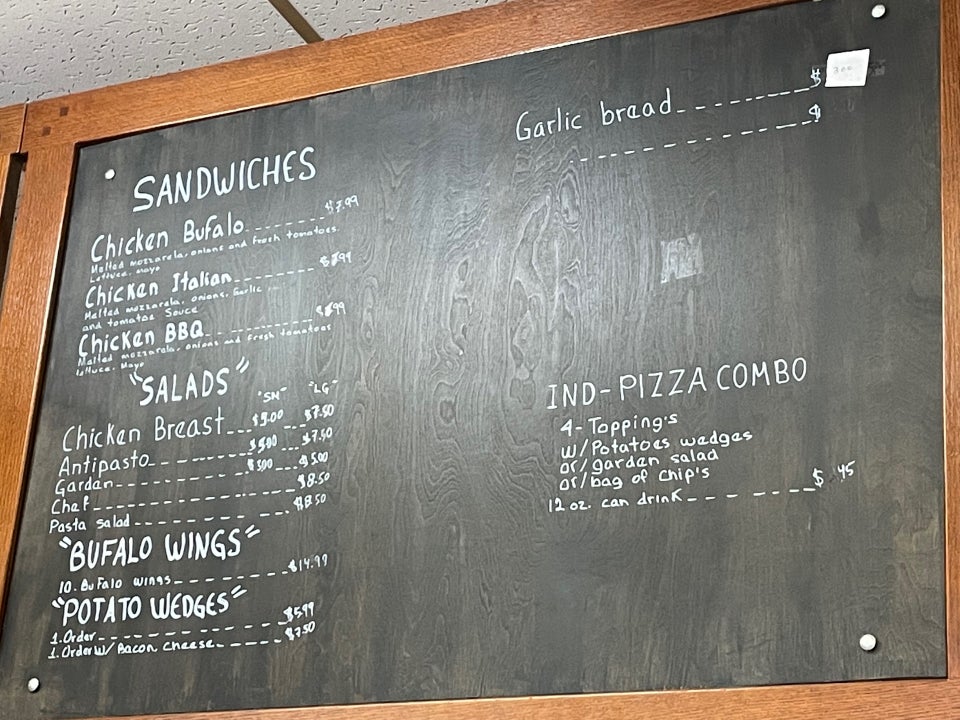 SANDWICHES
Chicken Bufalo------$7.99
Malted mozzarela, onions and fresh tomatoes.
Lettuce, mayo
Chicken Italian-------$7.99
Melted mozzarela, onions, Garlic
and tomatoe Sauce
Chicken BBQ--------$ .99
Malted mozzarela, onions and fresh tomatoes
lettuce, Mayo
"SALADS"
"SM" "LG"
Chicken Breast---$5.00---$7.50
Antipasto--------$5.00---$7.50
Garden--------$3.00---$5.00
Chef------------$8.50
Pasta salad---------$8.50
"BUFALO WINGS"
10. Bufalo wings--------$14.99
"POTATO WEDGES"
1. Order------------$5.99
1. Order w/ Bacon cheese-----$7.50
Garlic bread--------$ 3.00
----------$
IND-PIZZA COMBO
4-Topping's
w/Potatoes wedges
or/garden salad
or/bag of chip's
12 oz. can drink-------$ .45